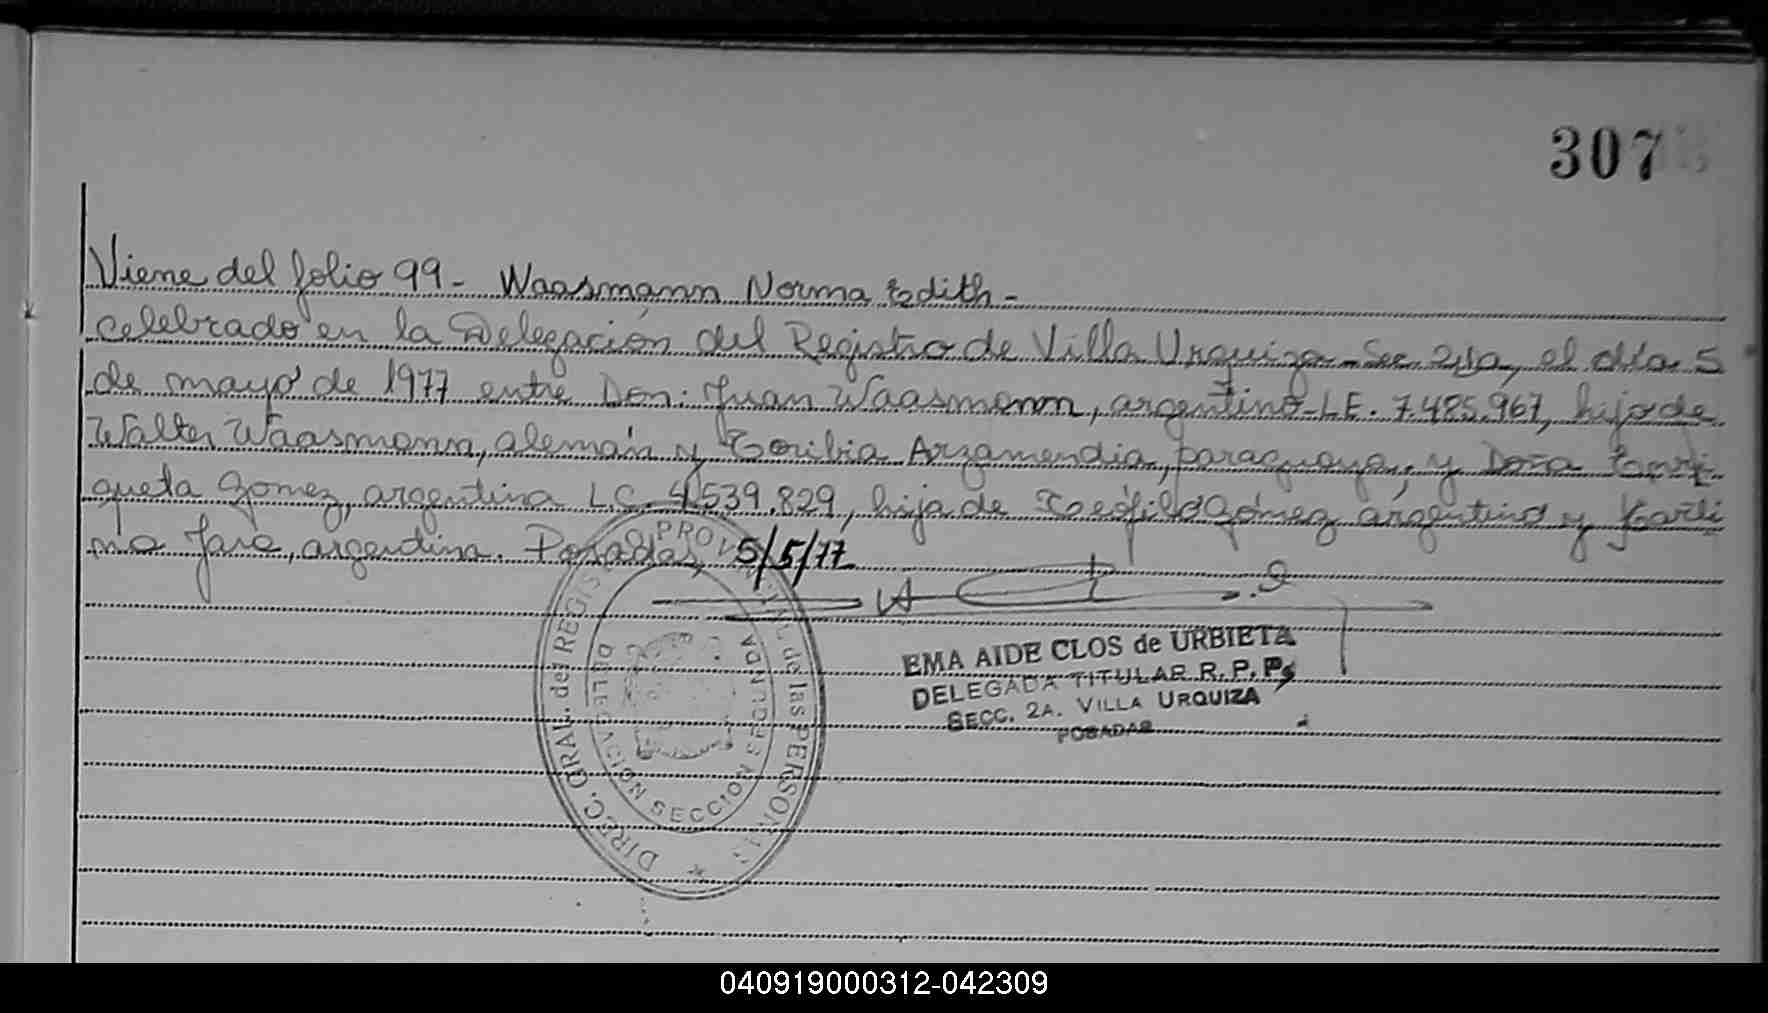 307
Viene del folio 99 - Waasmann Norma Edith -
celebrado en la Delegación del Registro de Villa Urquiza - Sec 2da, el día 5
de mayo de 1977 entre Don: Juan Waasmann, argentino - L.E. 7.485.967, hijo de
Walter Waasmann, alemán y Toribia Arzamendia, paraguaya, y Doña Enri-
queta Gomez, argentina L.C. 4.539.829, hija de Teófilo Gómez argentino y
Jara, argentina. Posadas, 5/5/77
EMA AIDE CLOS de URBIETA
DELEGADA TITULAR R. P. Ps
SECC. 2A. VILLA URQUIZA
POSADAS
DIREC. GRAL. del REGISTRO PROVINCIAL de las PERSONAS
DELEGACION SECCION SEGUNDA
040919000312-042309